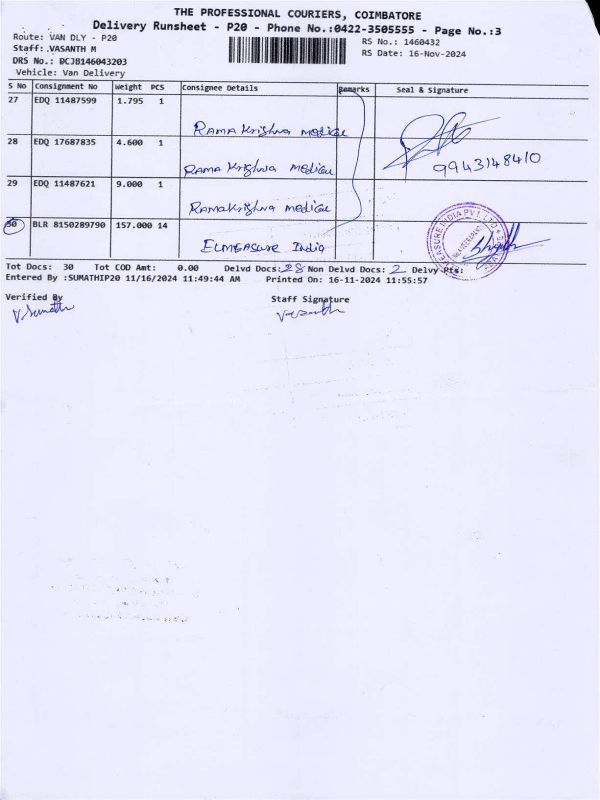 THE PROFESSIONAL COURIERS, COIMBATORE
Delivery Runsheet - P20 - Phone No.:0422-3505555 - Page No.:3
Route: VAN DLY - P20
RS No.: 1460432
Staff: VASANTH M
RS Date: 16-Nov-2024
DRS No.: DCJB146043203
Vehicle: Van Delivery
S No Consignment No Weight PCS Consignee Details Remarks Seal & Signature
27 EDQ 11487599 1.795 1
Rama Krishna medical
28 EDQ 17687835 4.600 1
Rama Krishna Medical
9943148410
29 EDQ 11487621 9.000 1
RamaKrishna medical
30 BLR 8150289790 157.000 14
ELMEASURE India
Tot Docs: 30 Tot COD Amt: 0.00 Delvd Docs: 28 Non Delvd Docs: 2 Delvy Pts:
Entered By :SUMATHIP20 11/16/2024 11:49:44 AM Printed On: 16-11-2024 11:55:57
Verified By
Staff Signature
V.Sumathi
Vasanth